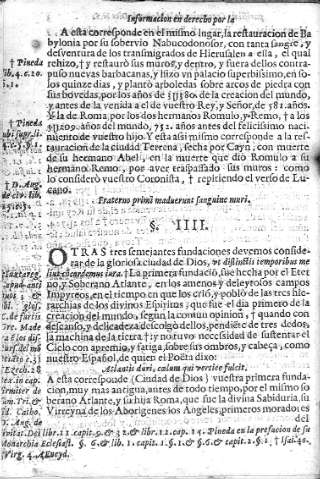 Informacion en derecho por la
A esta corresponde en el mismo lugar, la restauracion de Ba-
bylonia por su sobervio Nabucodonosor, con tanta sangre, y
desventura de los transmigrados de Hierusalen a ella, el qual
rehizo, † y restaurò sus muros, y dentro, y fuera dellos contra-
puso nuevas barbacanas, y hizo vn palacio superbissimo, en so-
los quinze dias, y plantò arboledas sobre arcos de piedra con
sus bovedas, por los años de de la creacion del mundo,
y antes de la venida a el de vuestro Rey, y Señor, de 581. años.
Y la de Roma, por los dos hermanos Romulo, y Remo, † a los
años del mundo, 752. años antes del felicissimo naci-
miento de vuestro hijo. Y esta assi mismo corresponde a la res-
tauracion de la ciudad Terrena, fecha por Cayn, con muerte
de su hermano Abel, en la muerte que diò Romulo a su
hermano Remo, por aver traspassado sus muros: como
lo considerò vuestro Coronista, † repitiendo el verso de Lu-
cano.
Fraterno primi maduerunt sanguine muri.
§. IIII.
OTRAS tres semejantes fundaciones devemos conside-
rar de la gloriosa ciudad de Dios, vt distinctis temporibus me
lius concordemus iura. † La primera fundaciò, fue hecha por el Eter
no, y Soberano Atlante, en los amenos y deleytosos campos
Impyreos, en el tiempo en que los criò, y poblò de las tres hie-
rarchias de los divinos Espiritus, que fue el dia primero de la
creacion del mundo, segun la comun opinion, † quando con
descanso, y delicadeza descolgò dellos, pendiẽte de tres dedos,
la machina de la tierra, † y no tuvo necessidad de sustentar el
Cielo con apremio, y fatiga, sobre sus ombros, y cabeça, como
nuestro Español, de quien el Poëta dixo:
Atlantis duri, cælum qui vertice fulcit.
A esta corresponde (Ciudad de Dios) vuestra primera funda-
cion, muy mas antigua, antes de todo tiempo, por el mismo so
berano Atlante, y su hija Roma, que fue la divina Sabiduria, su
Virreyna de los Aborigenes los Angeles, primeros morado-
del
† Pineda
lib. 4. c. 20.
† Pineda
† D. Aug.
de civ. lib.
Tre. Made
Ezech. 28
D. Aug. de
civitat. Dei libr. 11. capit. 9. & 32. & libr. 12. cap. 14. Pineda en la prefacion de su
Monarchia Ecclesiast. §. 6. & lib. 1. capit. 1. §. 1. & §. 6. & capit. 2. §. 2. † Isai. 40.
Virg. 4. Æneyd.